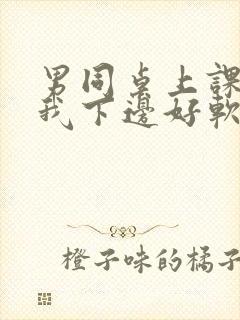 男同桌上課
我下邊好軟
橙子味的橘子